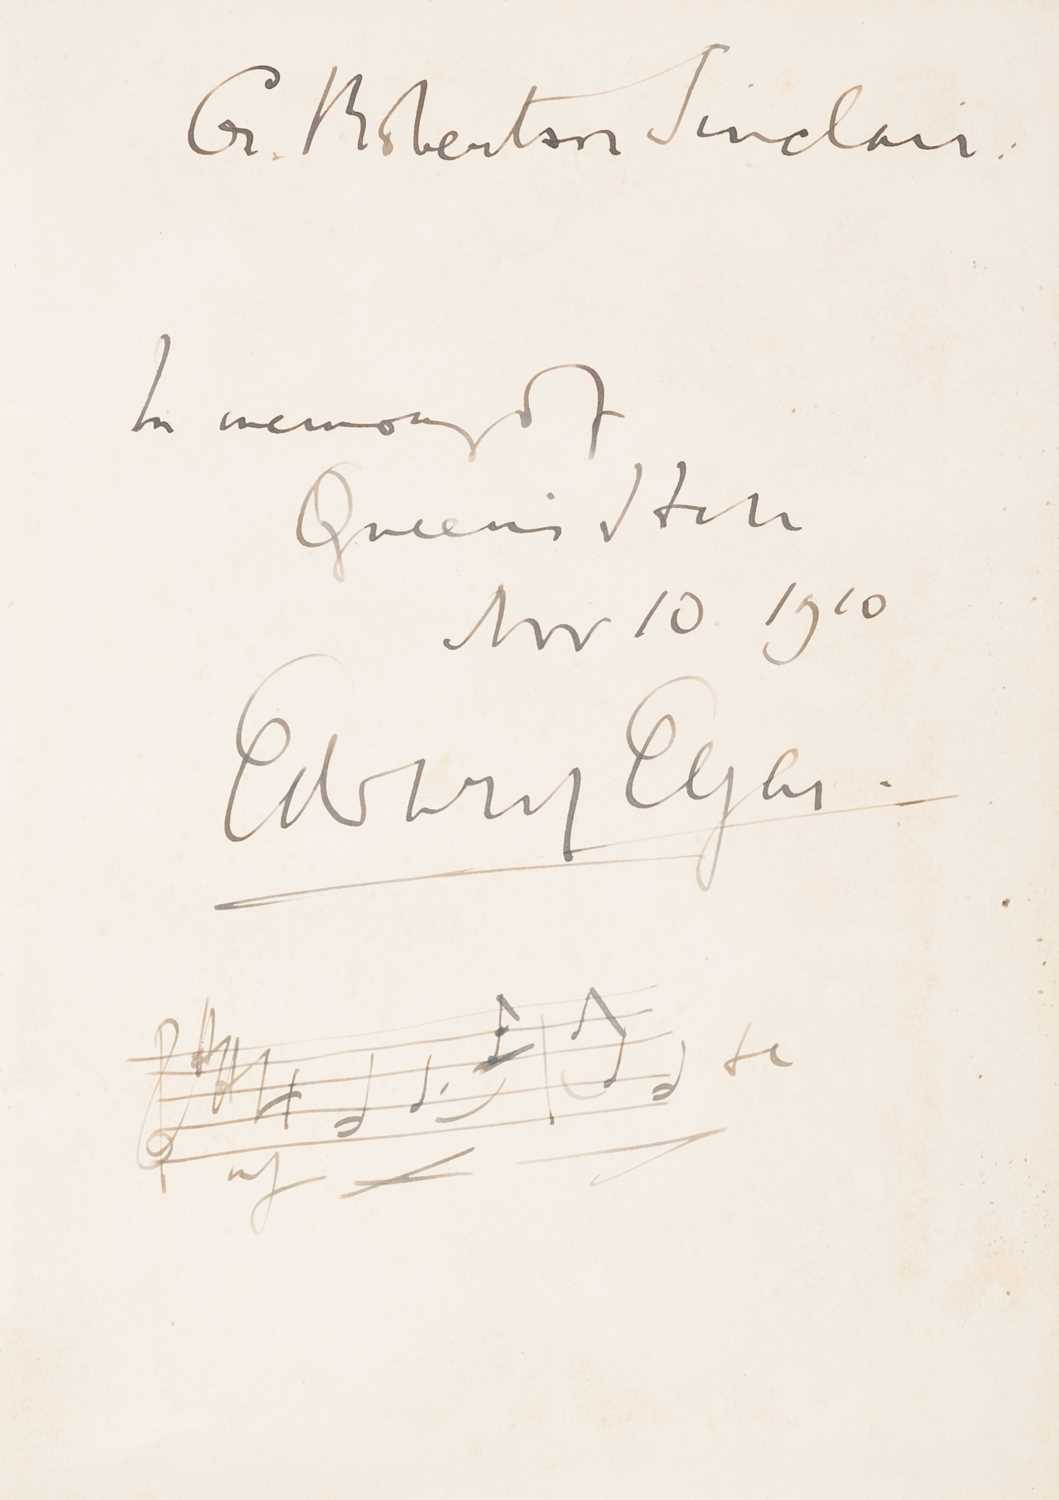 G. Robertson Sinclair.
In memory of
Queen's Hall
Nov 10 1910
Edward Elgar.
mf